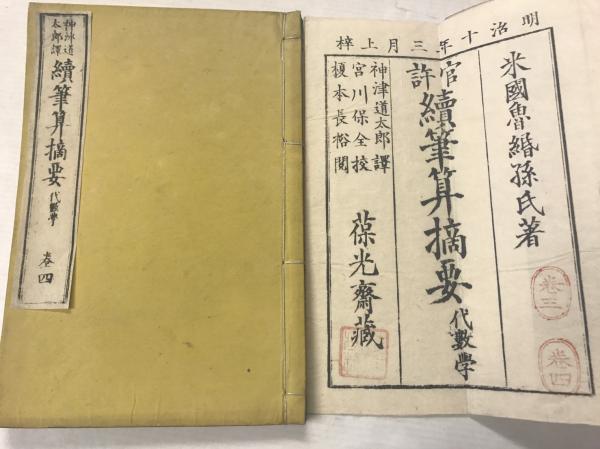 神津道
太郎譯
續筆算摘要
代數學
卷四
明治十年三月上梓
米國魯緡孫氏著
官許
續筆算摘要
代數學
神津道太郎譯
宮川保全校
榎本長裕閱
葆光齋藏
卷三
卷四